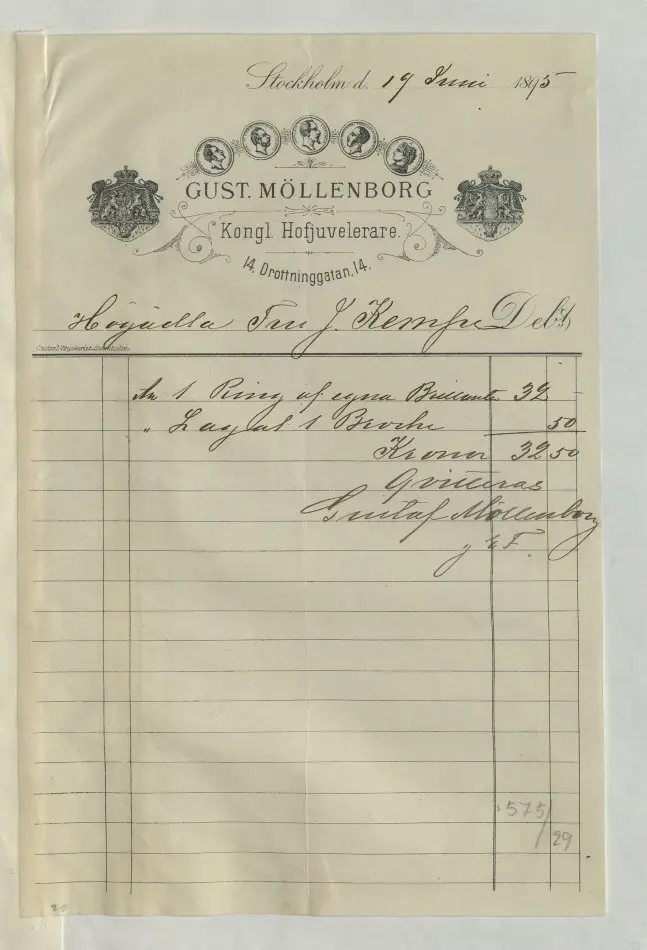 Stockholm d. 19 Juni 1895
GUST. MÖLLENBORG
Kongl. Hofjuvelerare.
14, Drottninggatan, 14.
Högädla Fru J. Kempe Debt.
Central-Tryckeriet, Stockholm.
An 1 Ring af egna Brillanter 32 -
" Lagat 1 Broche 50
Kronor 32 50
Qvitteras
Gustaf Möllenborg
575/29